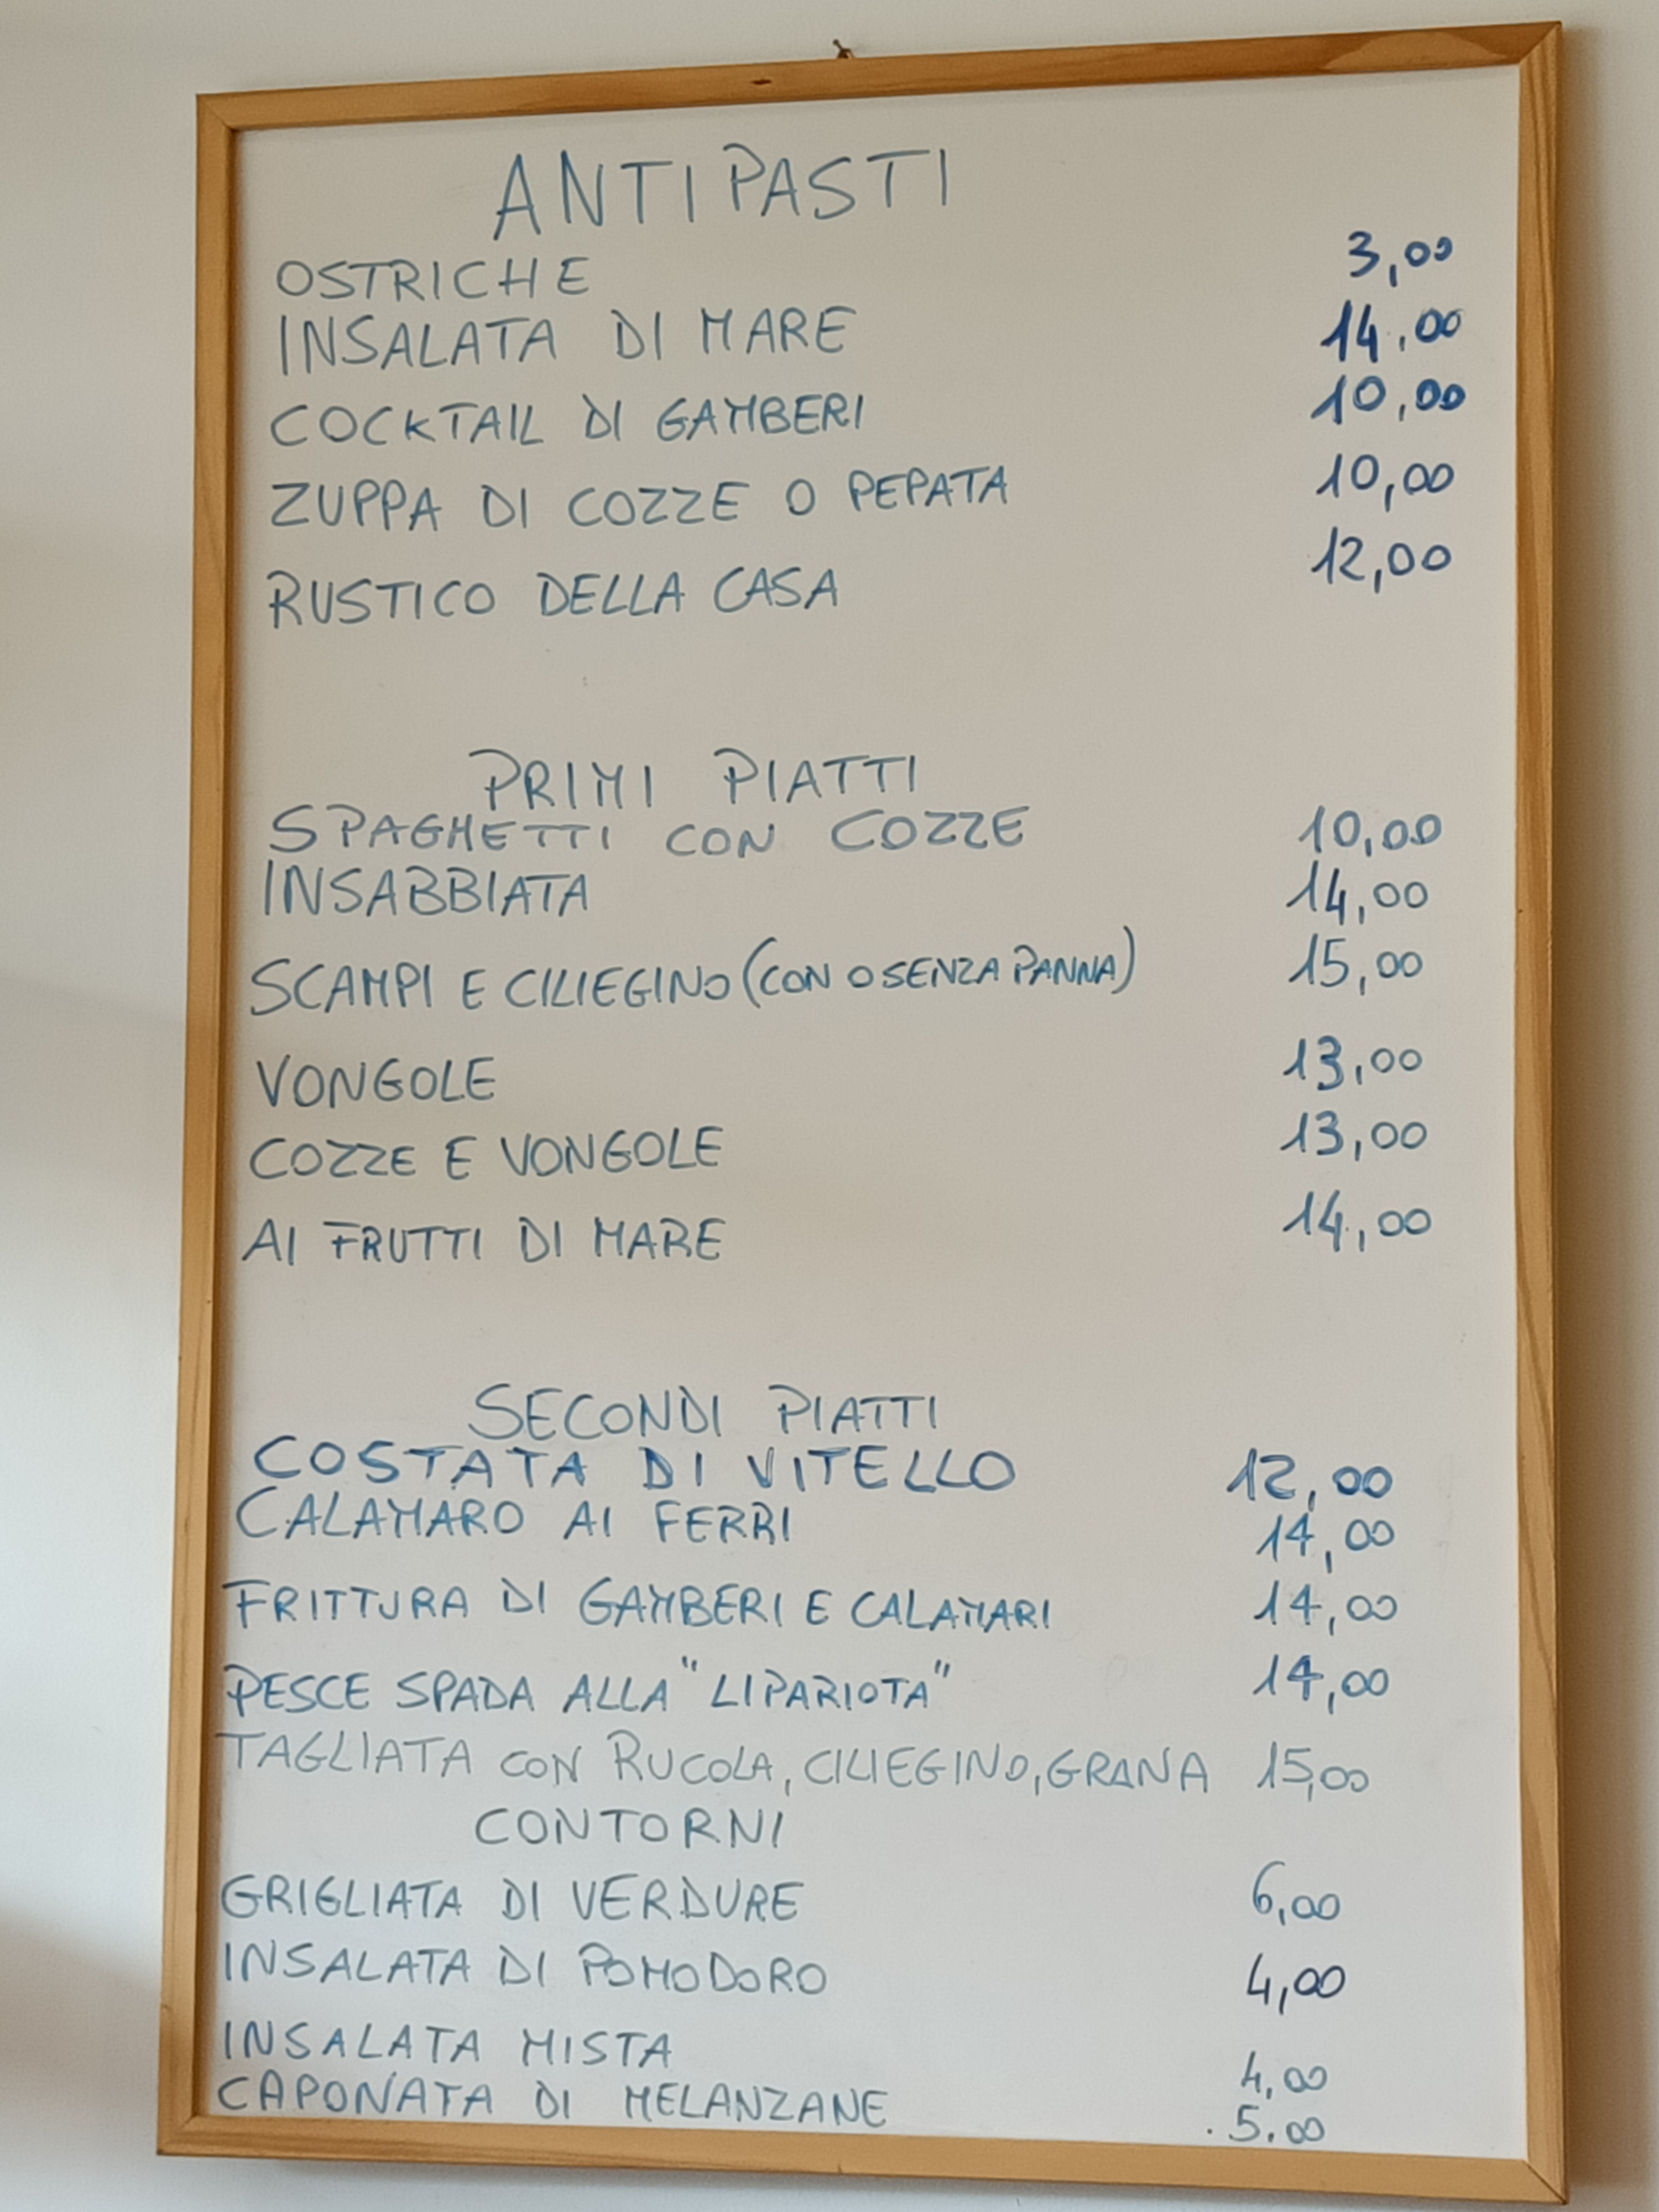 ANTIPASTI
OSTRICHE 3,00
INSALATA DI MARE 14,00
COCKTAIL DI GAMBERI 10,00
ZUPPA DI COZZE O PEPATA 10,00
RUSTICO DELLA CASA 12,00
PRIMI PIATTI
SPAGHETTI CON COZZE 10,00
INSABBIATA 14,00
SCAMPI E CILIEGINO (CON O SENZA PANNA) 15,00
VONGOLE 13,00
COZZE E VONGOLE 13,00
AI FRUTTI DI MARE 14,00
SECONDI PIATTI
COSTATA DI VITELLO 12,00
CALAMARO AI FERRI 14,00
FRITTURA DI GAMBERI E CALAMARI 14,00
PESCE SPADA ALLA "LIPARIOTA" 14,00
TAGLIATA CON RUCOLA, CILIEGINO, GRANA 15,00
CONTORNI
GRIGLIATA DI VERDURE 6,00
INSALATA DI POMODORO 4,00
INSALATA MISTA 4,00
CAPONATA DI MELANZANE 5.00